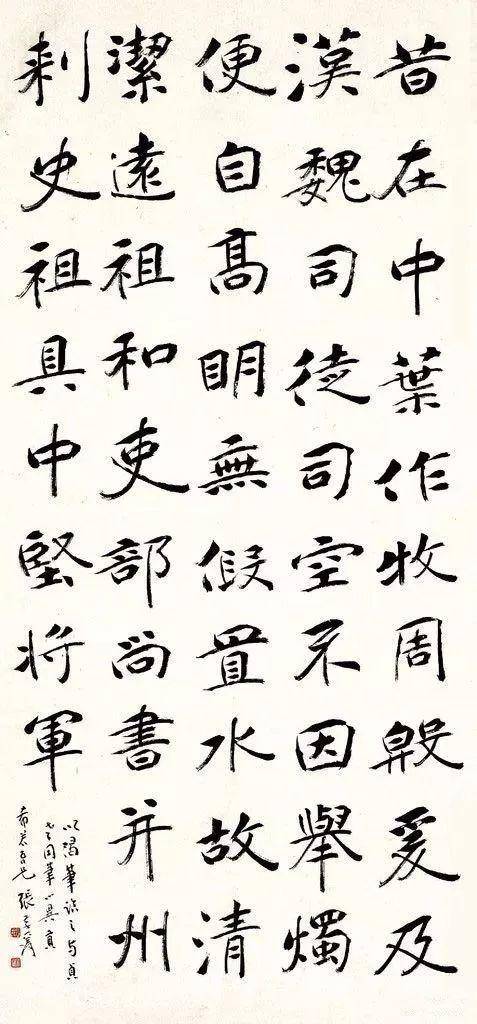 昔在中葉作牧周殷爰及
漢魏司徒司空不因舉燭
便自高明無假置水故清
潔遠祖和吏部尚書并州
刺史祖具中堅將軍
以渴筆臨之与
同筆
張季爰